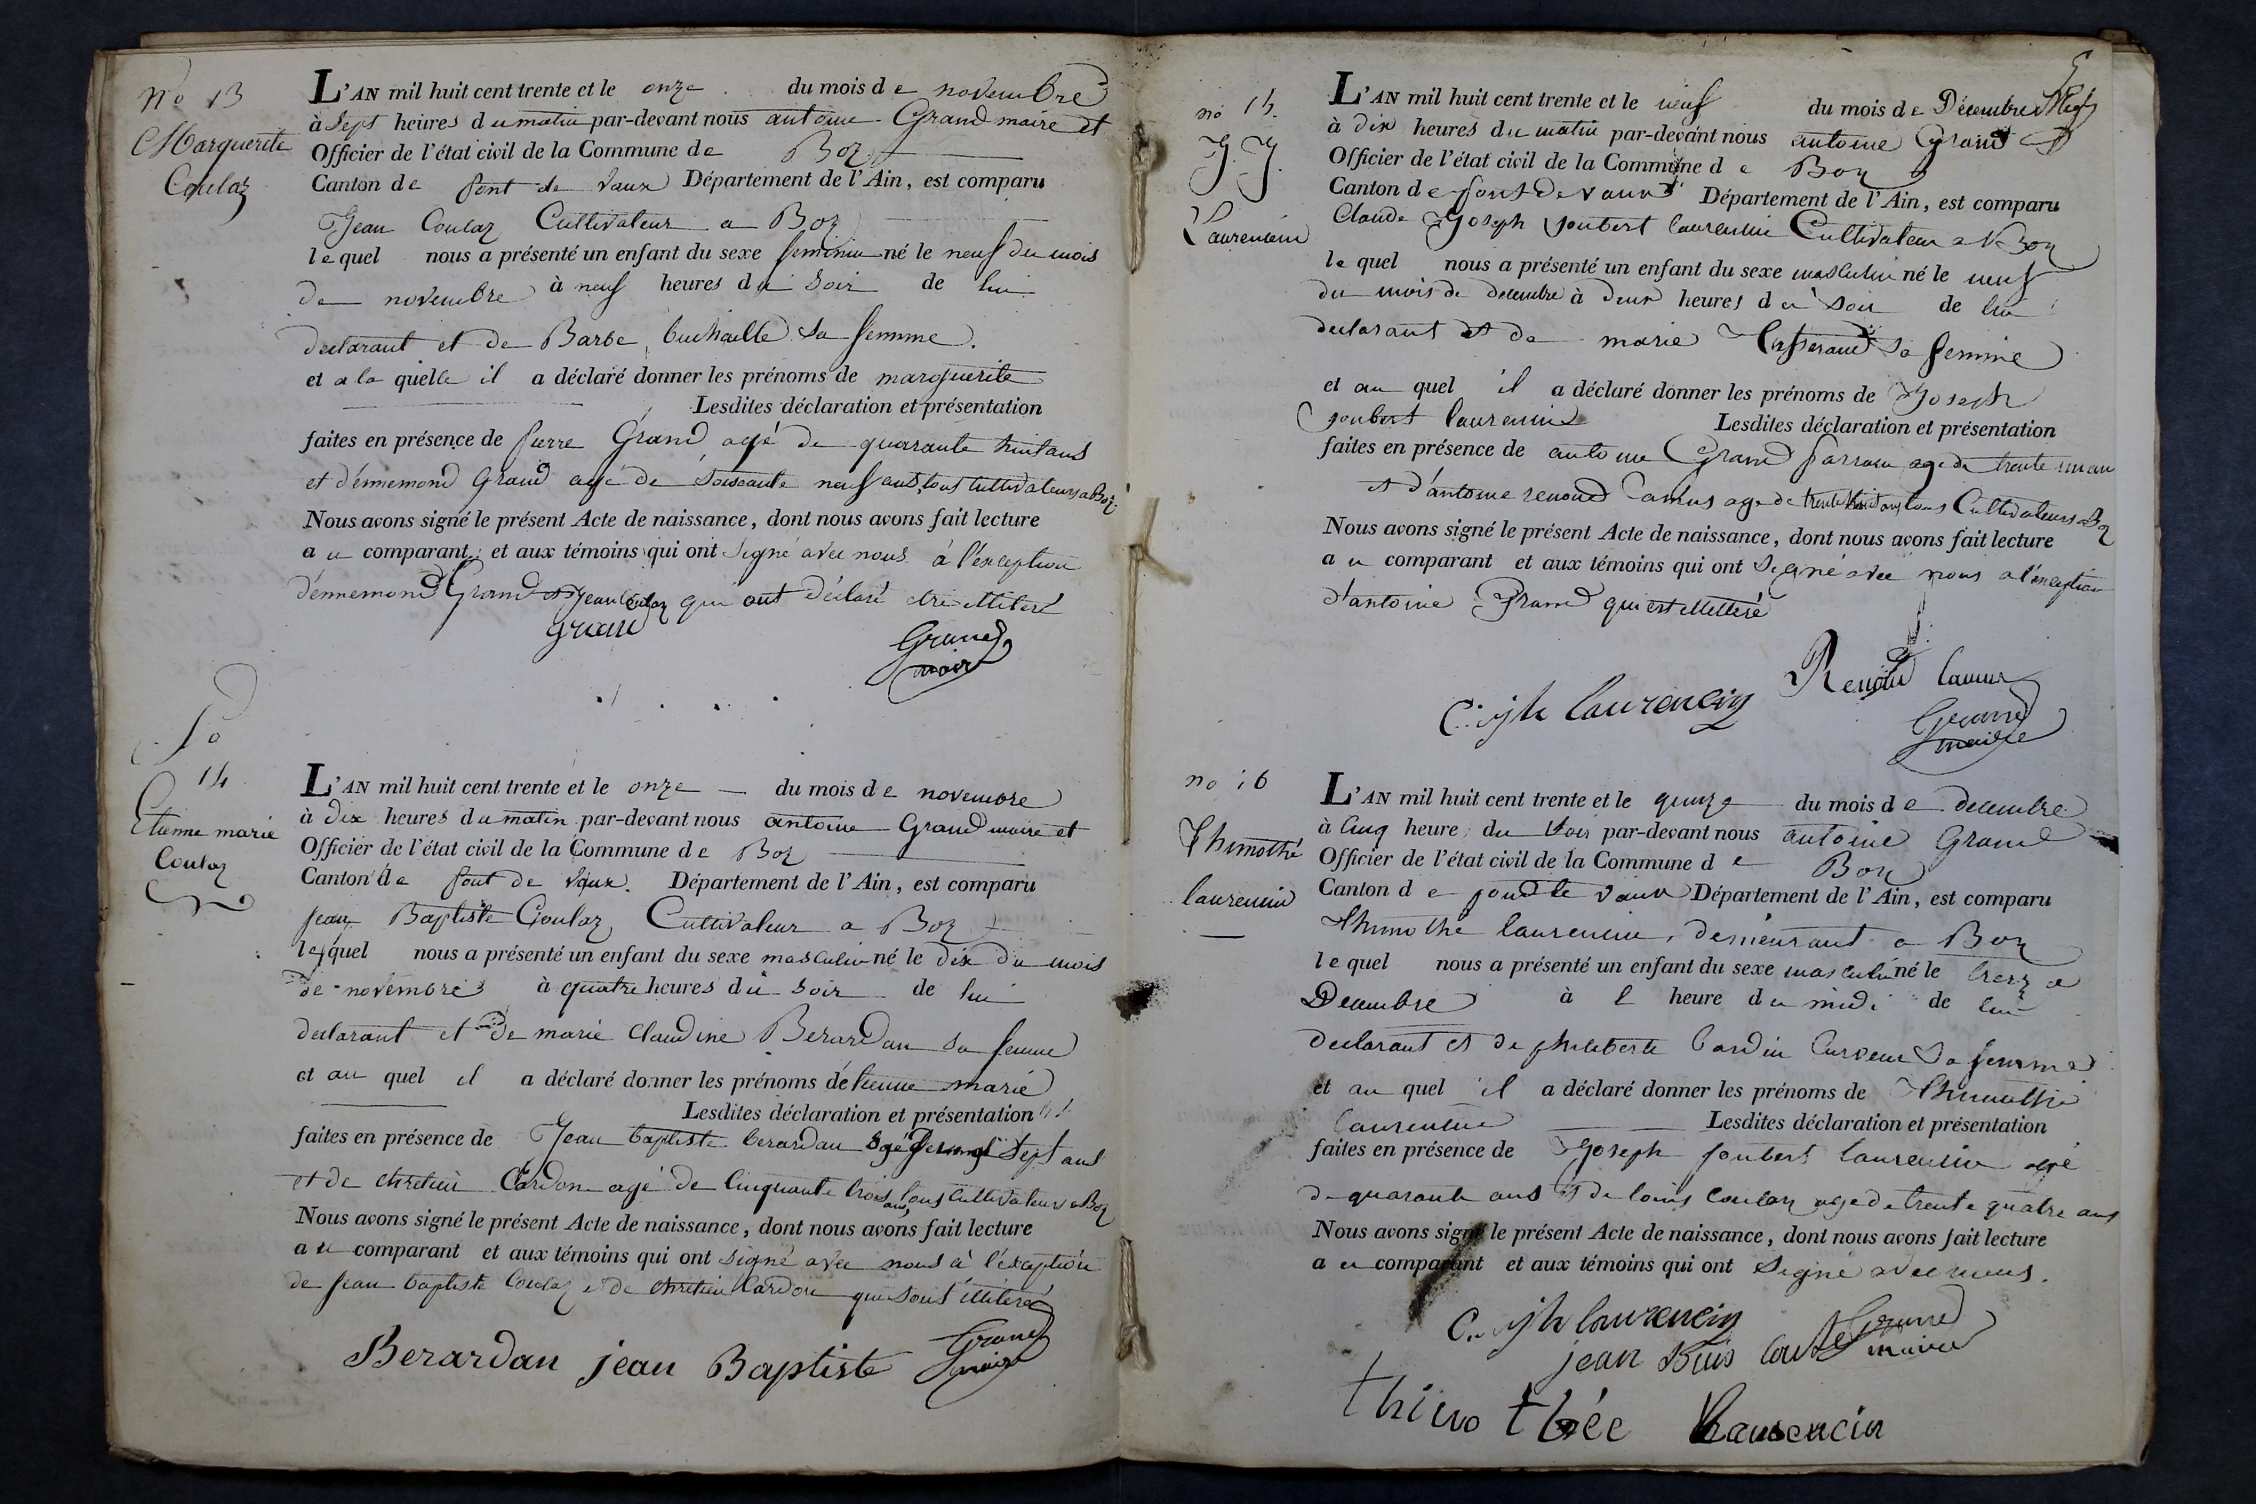 no 13
Marguerite
Coulaz
L'AN mil huit cent trente et le onze du mois de novembre
à sept heures du matin par-devant nous antoine Grand maire et
Officier de l'état civil de la Commune de Boz
Canton de pont de vaux Département de l'Ain, est comparu
Jean Coulaz Cultivateur a Boz
lequel nous a présenté un enfant du sexe feminin né le neuf du mois
de novembre à neuf heures du soir de lui
declarant et de Barbe buchaille sa femme.
et a la quelle il a déclaré donner les prénoms de marguerite
Lesdites déclaration et présentation
faites en présence de pierre Grand agé de quarante huit ans
et d'énnemond Grand agé de soixante neuf ans, tous cultivateurs a Boz.
Nous avons signé le présent Acte de naissance, dont nous avons fait lecture
au comparant et aux témoins qui ont signé avec nous à l'éxception
d'énnemond Grand et Jean Coulaz qui ont déclaré etre illiteré
grand
Grand
maire
no
14
Etienne marie
Coulaz
L'AN mil huit cent trente et le onze du mois de novembre
à dix heures du matin par-devant nous antoine Grand maire et
Officier de l'état civil de la Commune de Boz
Canton de pont de vaux. Département de l'Ain, est comparu
jean Baptiste Coulaz Cultivateur a Boz
lequel nous a présenté un enfant du sexe masculin né le dix du mois
de novembre à quatre heures du soir de lui
declarant et de marie claudine Berardan sa femme
et au quel il a déclaré donner les prénoms détienne marie
Lesdites déclaration et présentation
faites en présence de Jean baptiste berardan agé de vingt sept ans
et de chretien Cardon agé de Cinquante trois ans, tous cultivateurs a Boz
Nous avons signé le présent Acte de naissance, dont nous avons fait lecture
au comparant et aux témoins qui ont signé avec nous à l'éxception
de jean baptiste Coulaz et de chretien Cardon qui sont illiteré
Berardan jean Baptiste
Grand
maire
5
no 15.
J. J.
Laurencin
L'AN mil huit cent trente et le neuf du mois de Décembre
à dix heures du matin par-devant nous antoine Grand
Officier de l'état civil de la Commune de Boz
Canton de pont de vaux Département de l'Ain, est comparu
Claude Joseph joubert laurencin Cultivateur a Boz
lequel nous a présenté un enfant du sexe masculin né le neuf
du mois de decembre à deux heures du soir de lui
declarant et de marie sa femme
et au quel il a déclaré donner les prénoms de Joseph
joubert laurencin Lesdites déclaration et présentation
faites en présence de antoine Grand age de trente un an
et d'antoine renoud Camus age de trente huit ans tous Cultivateurs a Boz
Nous avons signé le présent Acte de naissance, dont nous avons fait lecture
au comparant et aux témoins qui ont signé avec nous a l'exception
d'antoine Grand qui est illitteré
Renoud Camus
C. jph laurencin
Grand
maire
no 16
Thimothé
laurencin
L'AN mil huit cent trente et le quinze du mois de decembre
à cinq heure du soir par-devant nous antoine Grand
Officier de l'état civil de la Commune de Boz
Canton de pont de vaux Département de l'Ain, est comparu
Thimothé laurencin, demeurant a Boz
lequel nous a présenté un enfant du sexe masculin né le treize
Decembre à heure du midi de lui
declarant et de philiberte sa femme
et au quel il a déclaré donner les prénoms de Thimothé
laurencin Lesdites déclaration et présentation
faites en présence de Joseph joubert laurencin agé
de quarante ans et de louis coulaz age de trente quatre ans
Nous avons signé le présent Acte de naissance, dont nous avons fait lecture
au comparant et aux témoins qui ont signé avec nous.
C. jph laurencin
Grand
maire
jean Louis
thimothée Laurencin